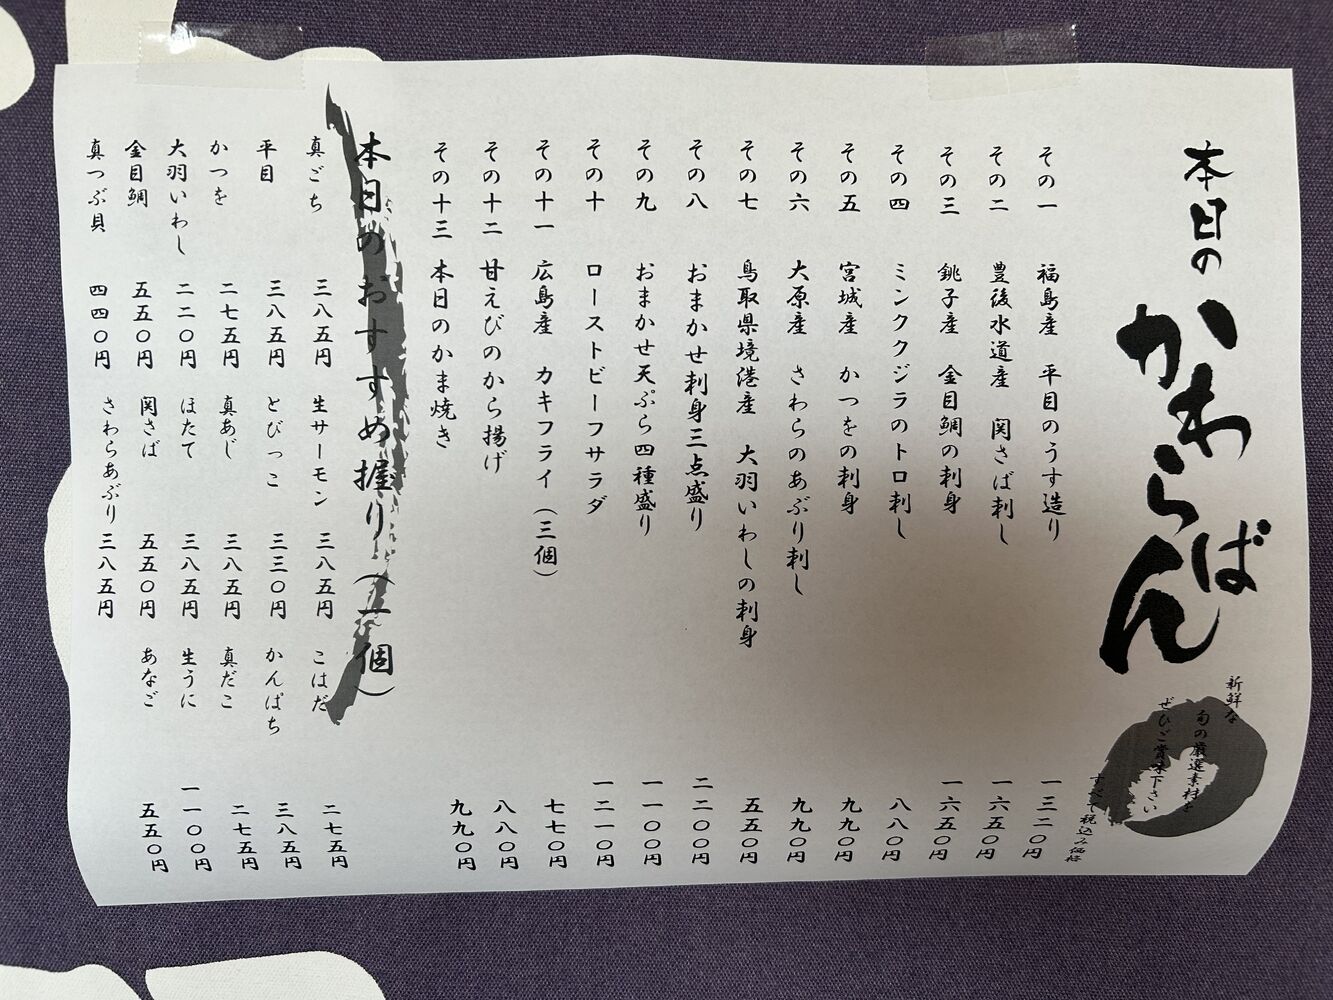 本日の
かわらばん
新鮮な
旬の厳選素材を
ぜひご賞味下さい
すべて税込み価格
その一 福島産 平目のうす造り 一三二〇円
その二 豊後水道産 関さば刺し 一六五〇円
その三 銚子産 金目鯛の刺身 一六五〇円
その四 ミンククジラのトロ刺し 八八〇円
その五 宮城産 かつをの刺身 九九〇円
その六 大原産 さわらのあぶり刺し 九九〇円
その七 鳥取県境港産 大羽いわしの刺身 五五〇円
その八 おまかせ刺身三点盛り 二二〇〇円
その九 おまかせ天ぷら四種盛り 一一〇〇円
その十 ローストビーフサラダ 一二一〇円
その十一 広島産 カキフライ（三個） 七七〇円
その十二 甘えびのから揚げ 八八〇円
その十三 本日のかま焼き 九九〇円
本日のおすすめ握り（一個）
真ごち 三八五円 生サーモン 三八五円 こはだ 二七五円
平目 三八五円 とびっこ 三三〇円 かんぱち 三八五円
かつを 二七五円 真あじ 三八五円 真だこ 二七五円
大羽いわし 二二〇円 ほたて 三八五円 生うに 一一〇〇円
金目鯛 五五〇円 関さば 五五〇円 あなご 五五〇円
真つぶ貝 四四〇円 さわらあぶり 三八五円